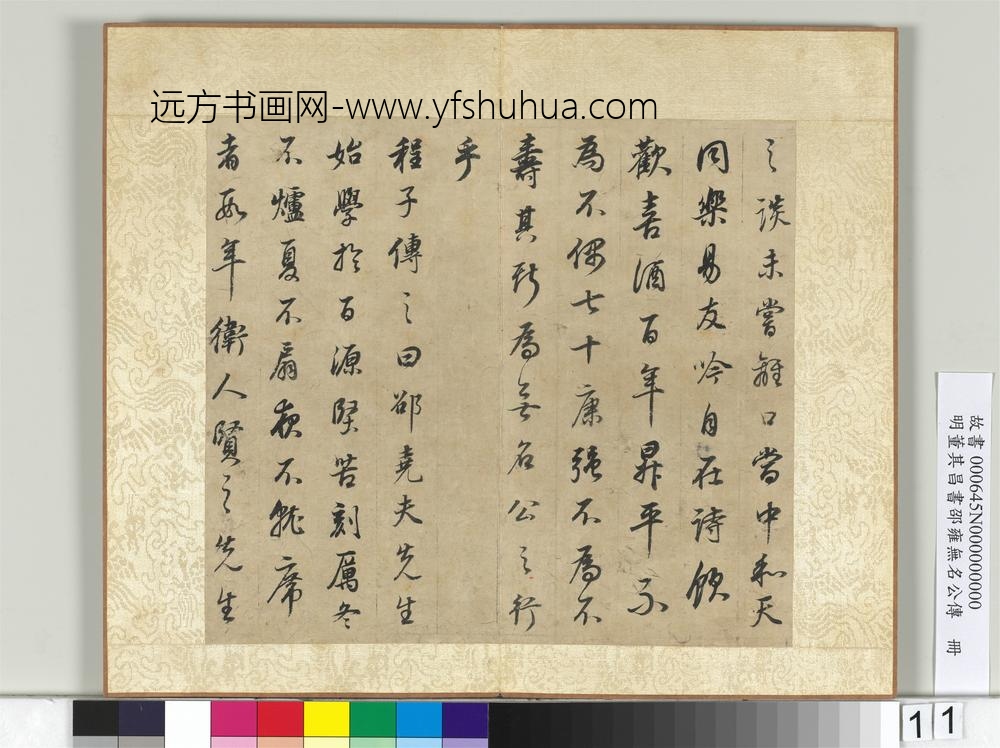 远方书画网-www.yfshuhua.com
之談未嘗離口當中和天
同樂易友吟自在詩飲
歡喜酒百年昇平不
為不偶七十康強不為不
壽其斯為無名公之行
乎
程子傳之曰邵堯夫先生
始學於百源堅苦刻厲冬
不爐夏不扇夜不就席
者數年衛人賢之先生
故書000645N000000000
明董其昌書邵雍無名公傳 冊
11